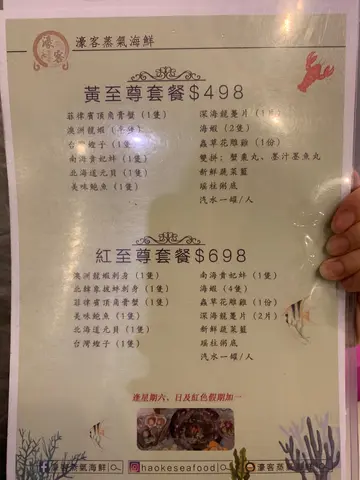 濠客
濠客蒸氣海鮮
黃至尊套餐$498
菲律賓頂角膏蟹 (1隻)
澳洲龍蝦 (半份)
台灣蟶子 (1隻)
南海貴妃蚌 (1隻)
北海道元貝 (1隻)
美味鮑魚 (1隻)
深海龍躉片 (1片)
海蝦 (2隻)
蟲草花雕雞 (1份)
雙拼: 蟹棗丸、墨汁墨魚丸
新鮮蔬菜籃
瑤柱粥底
汽水一罐/人
紅至尊套餐$698
澳洲龍蝦刺身 (1隻)
北韓象拔蚌刺身 (1隻)
菲律賓頂角膏蟹 (1隻)
美味鮑魚 (1隻)
北海道元貝 (1隻)
台灣蟶子 (1隻)
南海貴妃蚌 (1隻)
海蝦 (4隻)
蟲草花雕雞 (1份)
深海龍躉片 (2片)
新鮮蔬菜籃
瑤柱粥底
汽水一罐/人
逢星期六、日及紅色假期加一
濠客蒸氣海鮮
haokeseafood
濠客蒸氣海鮮